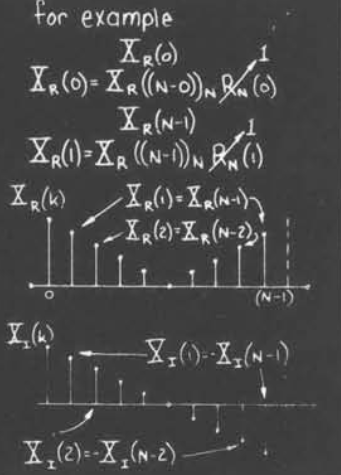 for example
X_R(0)
X_R(0) = X_R((N-0))_N R_N(0) 1
X_R(N-1)
X_R(1) = X_R((N-1))_N R_N(1) 1
X_R(k)
X_R(1) = X_R(N-1)
X_R(2) = X_R(N-2)
0
(N-1)
X_I(k)
X_I(1) = -X_I(N-1)
X_I(2) = -X_I(N-2)